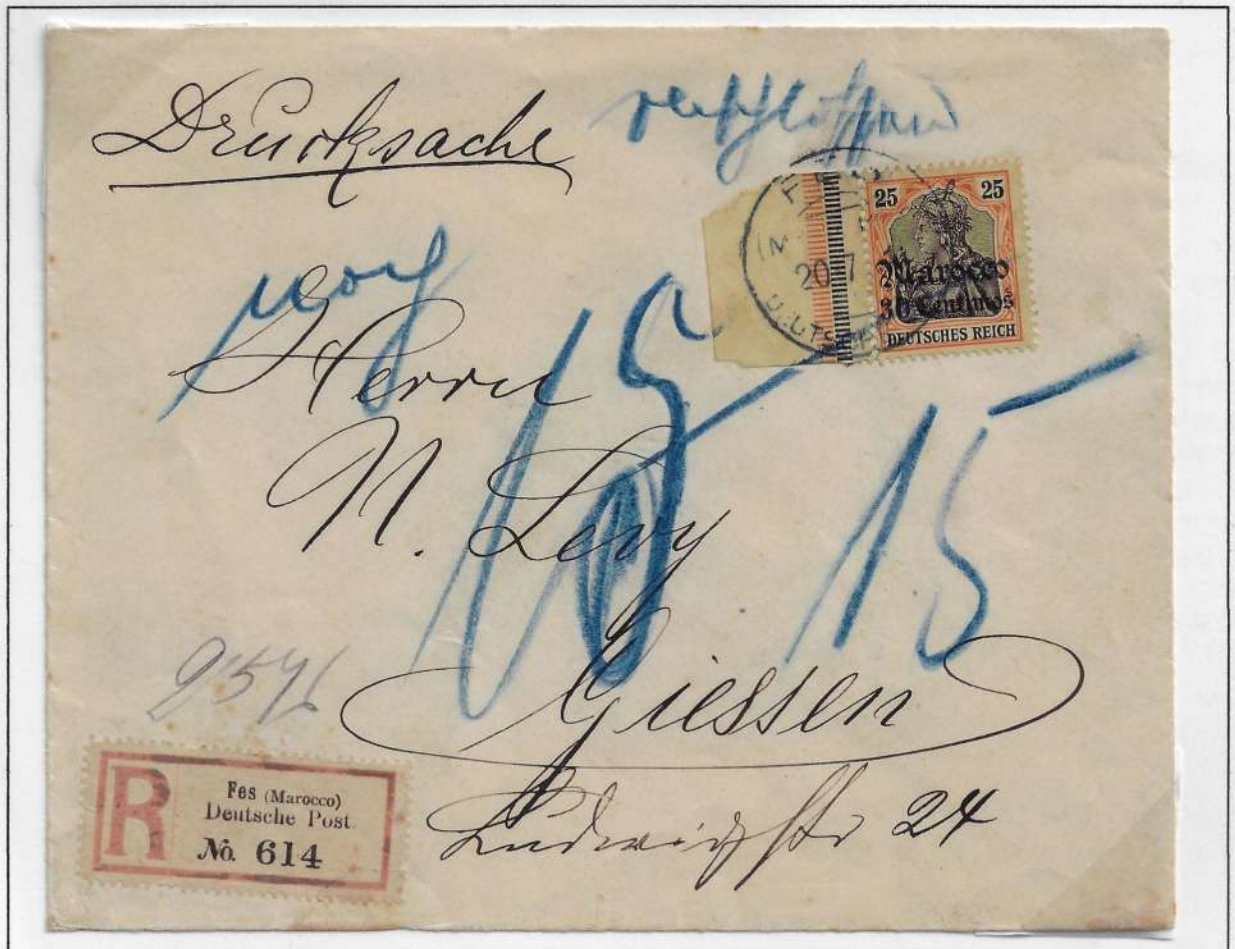 Drucksache verschlossen
25 25
Marocco
30 Centimos
DEUTSCHES REICH
20 7
noch
Herrn
N. Levy
15 15
Giessen
Ludwigstr 24
R
Fes (Marocco)
Deutsche Post.
No. 614